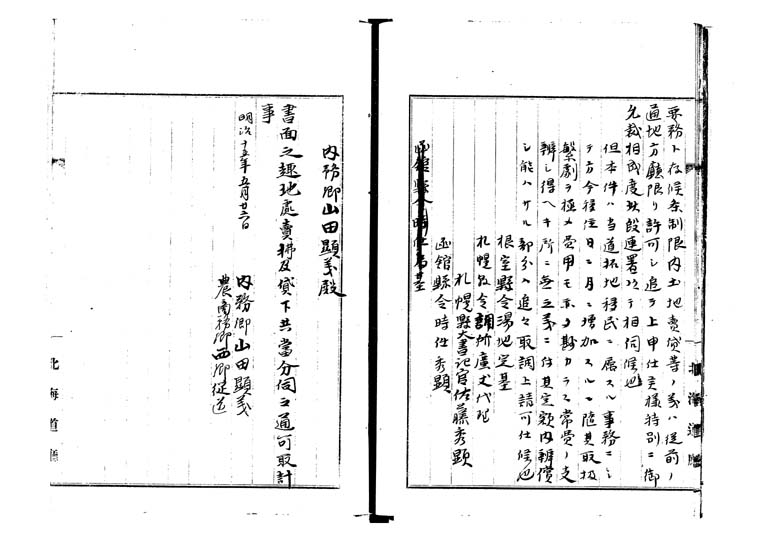 要務ト存候条制限内土地賣貸等ノ義ハ従前ノ
通地方廳限リ許可シ追テ上申仕候様特別ニ御
允裁相成度此段連署以テ相伺候也
但本件ハ当道拓地移民ニ属スル事務ニシ
テ方今移住日ニ月ニ増加スルニ随其取扱
繁劇ヲ極メ費用モ亦多カラス常費ノ支
辨シ得ヘキ所ニ無之義ニ付其定額内辨償
シ能ハサル部分ハ追々取調上請可仕候也
根室縣令湯地定基
札幌縣令調所廣丈代理
札幌縣大書記官佐藤秀顕
函館縣令時任為基
内務卿山田顕義殿
書面之趣地處賣拂及貸下共當分伺之通可取計
事
明治十五年五月廿二日
内務卿山田顕義
農商務卿西郷従道
北海道廳
北海道廳